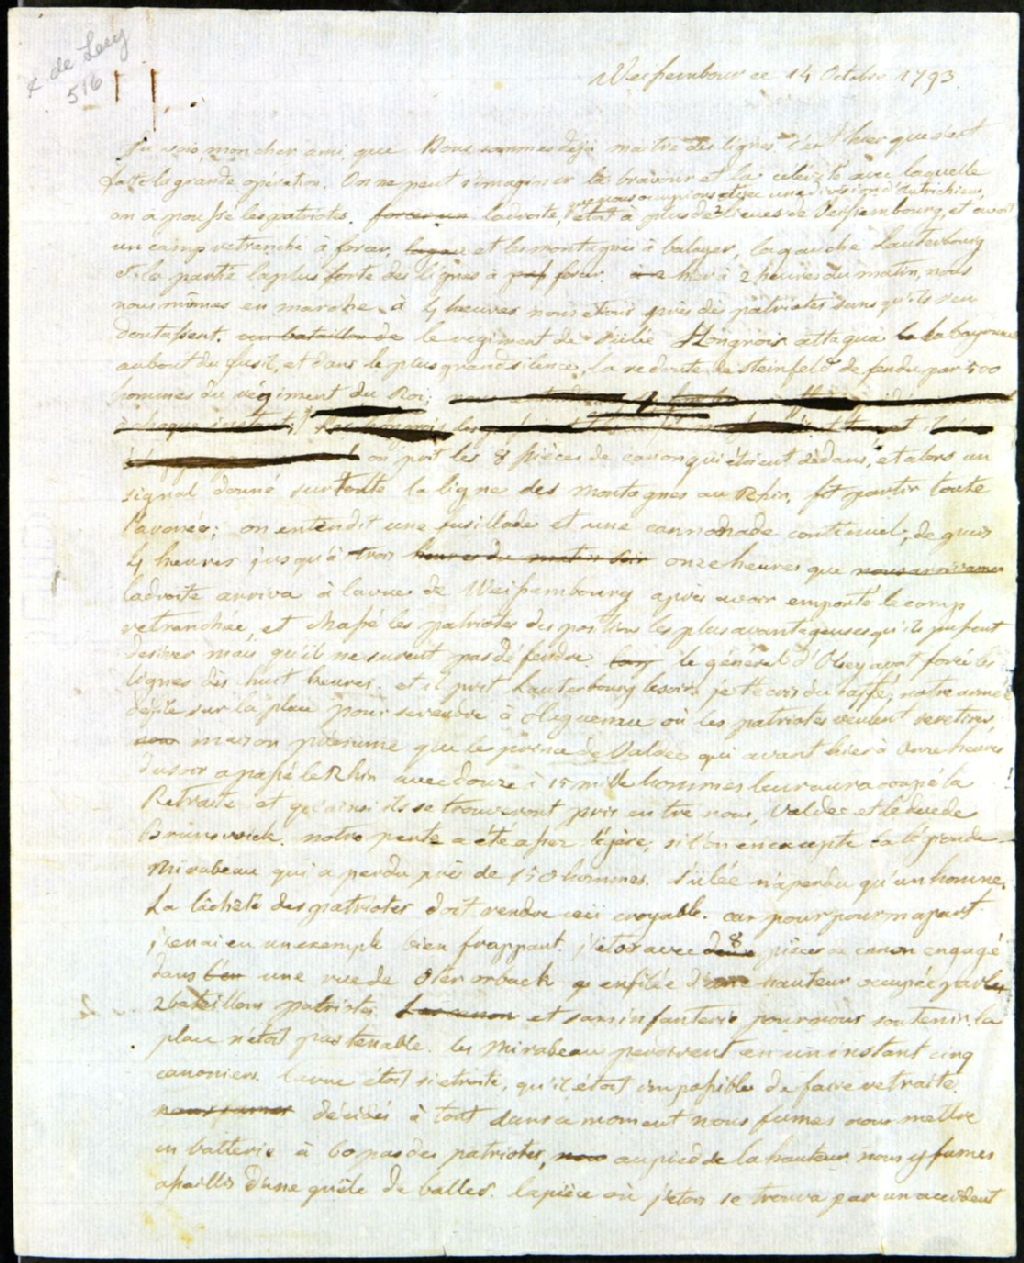 de Lery
516
Weissembour ce 14 Octobre 1793.
mon cher ami, que Nous sommes déjà maitre des lignes c'est hier que s'est
faite la grande opération. On ne peut s'imaginer la bravour et la célérité avec laquelle
que nous occupions avec une division d'Autrichiens,
on a poussé les patriotes. la droite, étoit à plus de 2 lieues de Weissembourg, et avoit
un camp retranché à forcer, et les montagnes à balayer, la gauche Lauterbourg
et la partie la plus forte des lignes à forcer. hier à 2 heures du matin, nous
nous mîmes en marche à 4 heures nous etions près des patriotes sans qu'ils s'en
doutassent. un bataillon de le regiment de Hongrois attaqua la bayonnette
au bout du fusil, et dans le plus grand silence, la redoute de Steinfeld defendu par 500
hommes du régiment du Roi;
on prit les 8 pièces de canon qui étoient dedans, et alors un
signal donné sur toute la ligne des montagnes au Rhin, fit partir toute
l'armée; on entendit une fusillade et une cannonade continuel, depuis
4 heures jusqu'à trois heures du matin soir onze heures que nous arrivames
la droite arriva à la vue de Weissembourg après avoir emporté le camp
retranchée, et chassé les patriotes des positions les plus avantageuses qu'ils pussent
desirer mais qu'il ne surent pas défendre. le général avoit forcé les
lignes dès huit heures, et il prit Lauterbourg le soir, notre armée
défile sur la place pour se rendre à Haguenau où les patriotes veulent se retirer,
mais on présume que le prince de Valdec qui avant hier à onze heures
du soir a passé le Rhin avec douze à 15 mille hommes leur aura coupé la
Retraite et qu'ainsi ils se trouveront pris entre nous, Valdec et le duc de
Brunsvick. notre perte a été assez légère, si l'on en excepte la légion de
Mirabeau qui a perdu près de 150 hommes. n'a perdu qu'un homme.
La lâcheté des patriotes doit rendre ceci croyable. car pour pour ma part
j'en ai eu un exemple bien frappant j'etois avec 8 pièces de canon engagé
dans une rue de enfilée d'une hauteur occupée par les
2 bataillons patriotes. et sans infanterie pour nous soutenir la
place n'étoit pas tenable. les Mirabeau perdirent en un instant cinq
canoniers. la rue étoit si etroite, qu'il étoit impossible de faire retraite.
nous fumes décidés à tout dans ce moment nous fumes nous mettre
en batterie à 60 pas des patriotes, nous au pied de la hauteur. nous y fumes
assaillis d'une grêle de balles. la pièce où j'etois se trouva par un accident